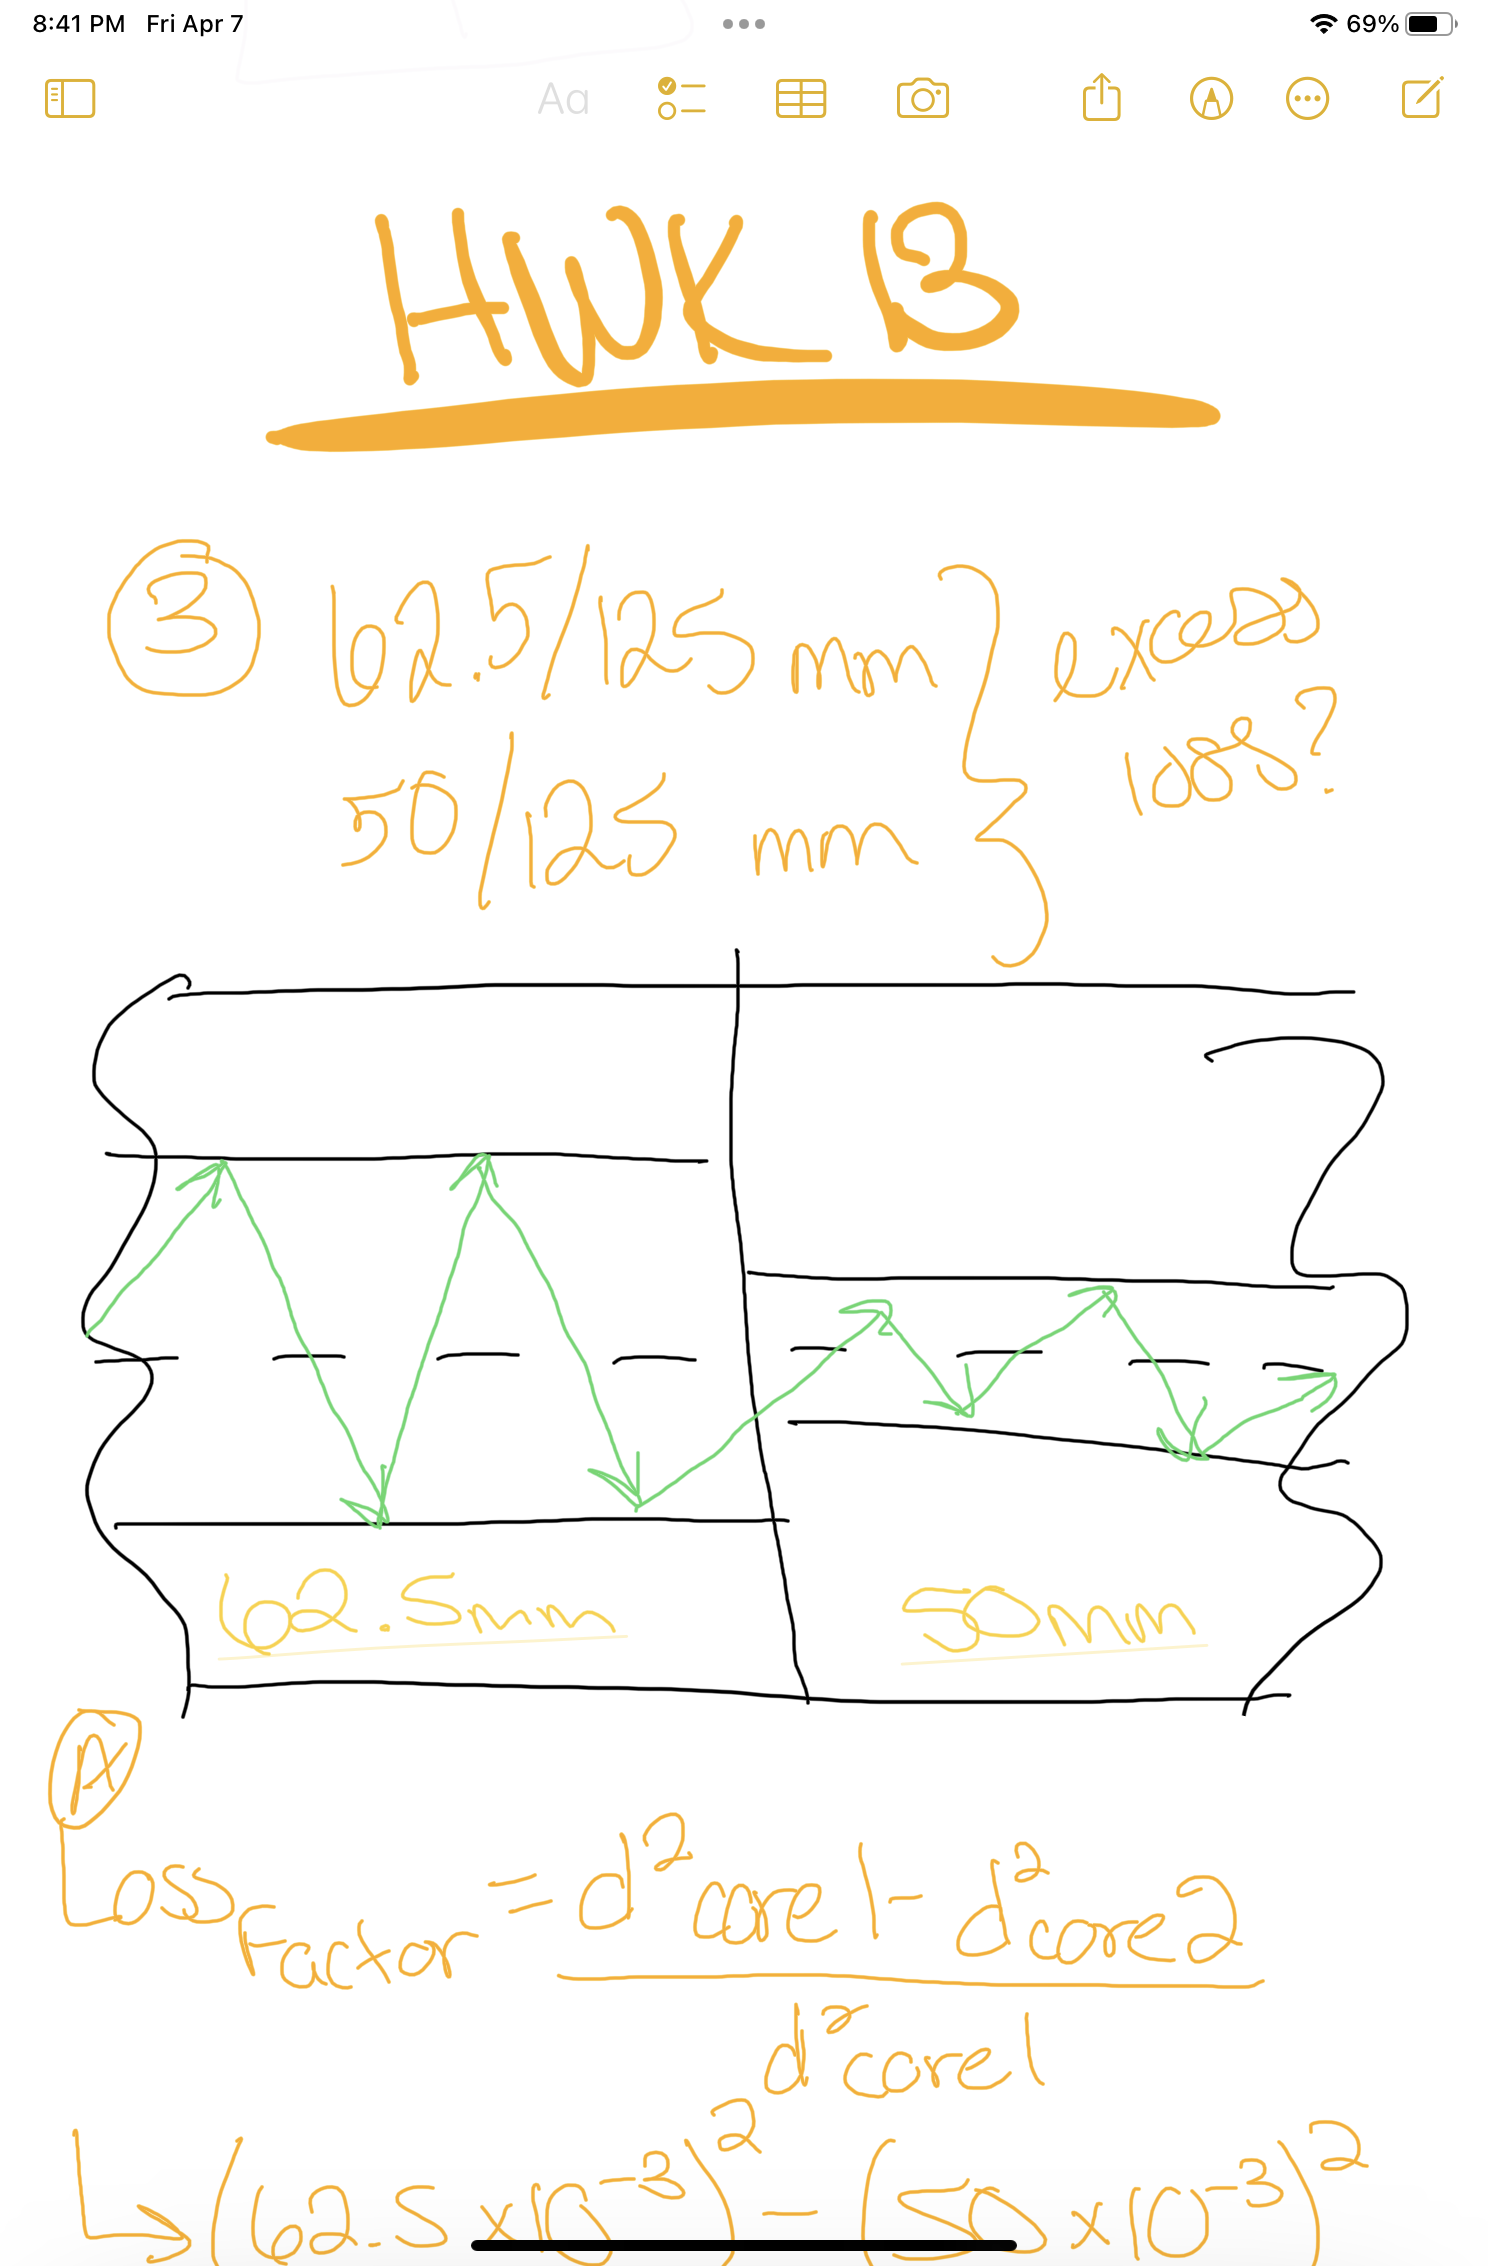 8:41 PM Fri Apr 7
69%
Aa
HWK 13
3 62.5/125 mm } excess
50/125 mm loss?
62.5mm 50mm
A
Loss Factor = d² core 1 - d² core 2
d² core 1
(62.5 x10⁻³)² - (50 x10⁻³)²